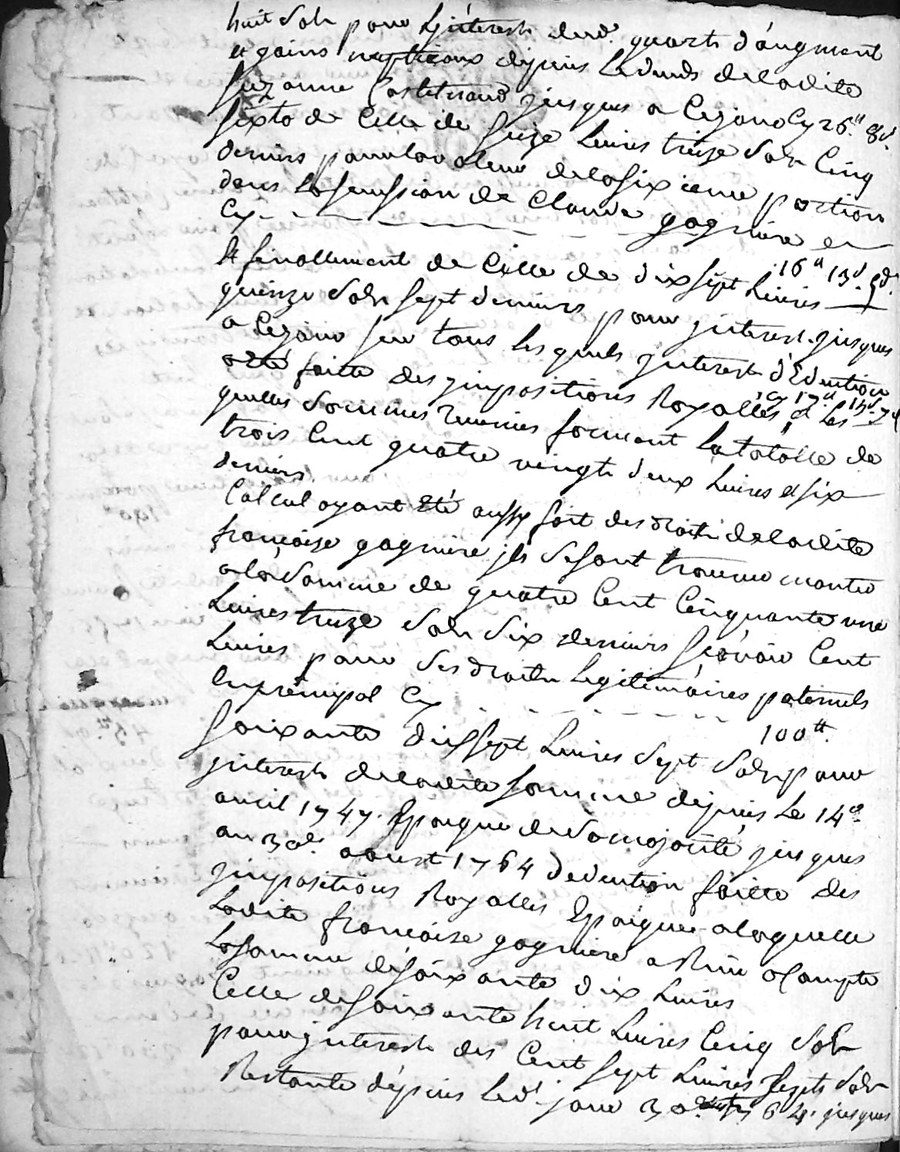 huit sols pour l'jnterest dud. quart d'augment
et gains nuptiaux depuis le deuds de ladite
Suzanne Castelnaud jusques a ce jour Cy 26 ll 8 s.
sixto de Celle de seize Livres treize sols Cinq
deniers pour la valeur de la sixieme portion
dans la sucession de Claude gagniere en
Cy - - - - - - 16 ll 13 s. 5 d.
Et finallement de Celle de dix sept Livres
quinze sols sept deniers pour jnterest jusques
a ce jour sur tous lesquels jnterest déduction
a été faitte des jmpositions Royalles Cy 17 ll 15 s 7 d
et les quelles sommes reunies forment la totalle de
trois Cent quatre vingts deux Livres et six
deniers
Calcul ayant Eté aussy fait des droits de ladite
francoise gagniere jls se sont trouvé monter
a la somme de quatre Cent Cinquante une
Livres treize sols six deniers scavoir Cent
Livres pour ses droits Legitimaires paternels
En principal Cy - - - - - 100 tt.
soixante dix sept Livres sept sols pour
jnterest de ladite somme depuis le 14e.
avril 1747. Epoque de sa majorité jusques
au 30e. aoust 1764 deduction faitte des
jmpositions Royalles Epoque a laquelle
Ladite francoise gagniere a Reçu a Compte
la somme de soixante dix Livres
Celle de soixante huit Livres Cinq sols
pour jnterest des Cent sept Livres sept sols
Restante depuis led. jour 30 aoust 64. jusques